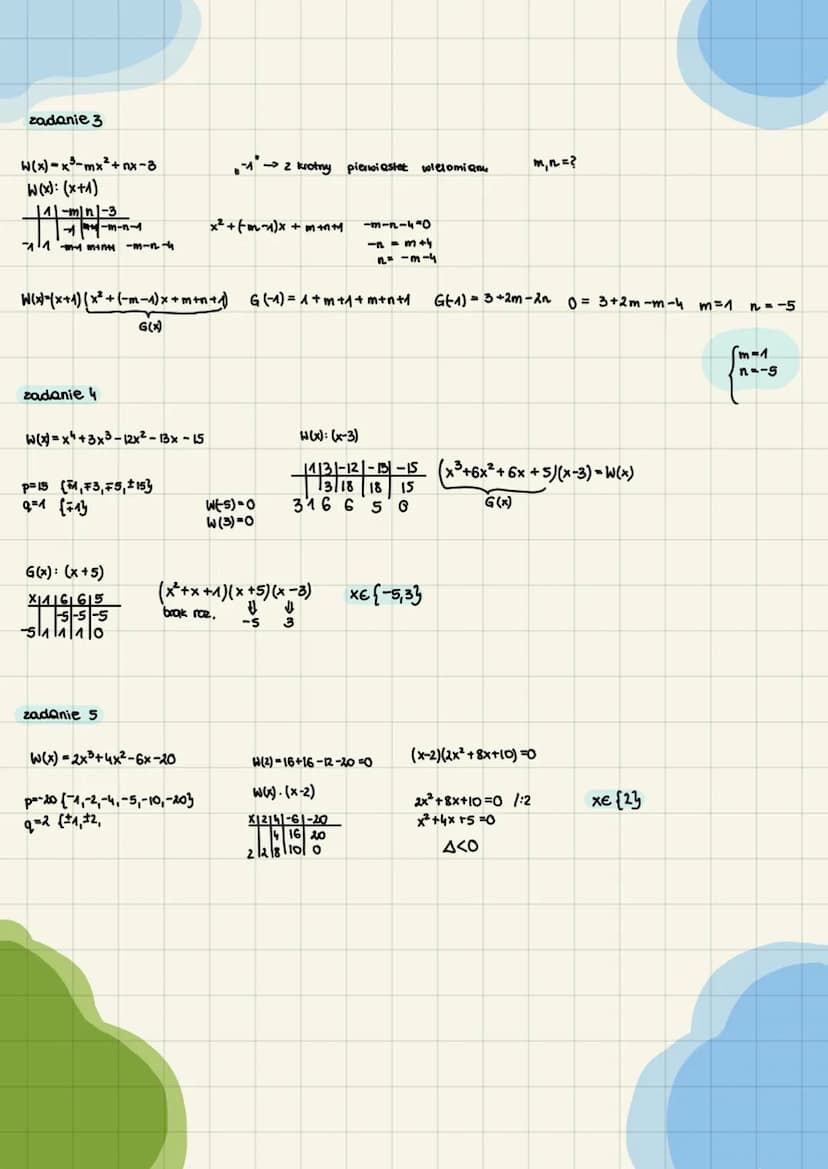 zadanie 3
W(x)=x³-mx²+nx-3
„-1" → 2 krotny pierwiastek wielomianu
m,n=?
W(x):(x+1)
| 1 | -m | n | -3
| | -1 | m+1 | -m-n-1
-1 | 1 -m-1 m+n+1 -m-n-4
x²+(-m-1)x + m+n+1
-m-n-4=0
-n = m+4
n= -m-4
W(x)=(x+1)(x²+(-m-1)x+m+n+1)
G(x)
G(-1) = 1+m+1+m+n+1
G(-1) = 3+2m-2n
0 = 3+2m-m-4
m=1
n=-5
{m=1
n=-5
zadanie 4
W(x)=x⁴+3x³-12x²-13x-15
W(x):(x-3)
p=15 {∓1,∓3,∓5,±15}
q=1 {∓1}
W(-5)=0
W(3)=0
|1|3|-12|-13|-15
| |3|18|18|15
3 1 6 6 5 0
(x³+6x²+6x+5)(x-3)=W(x)
G(x)
G(x):(x+5)
x|1|6|6|5
| |-5|-5|-5
-5|1|1|1|0
(x²+x+1)(x+5)(x-3)
brak roz. ⇓ ⇓
-5 3
x∈{-5,3}
zadanie 5
W(x)=2x³+4x²-6x-20
p=-20 {-1,-2,-4,-5,-10,-20}
q=2 {±1,±2,
W(2)=16+16-12-20=0
W(x).(x-2)
x|2|4|-6|-20
| |4|16|20
2|2|8|10|0
(x-2)(2x²+8x+10)=0
2x²+8x+10=0 /:2
x²+4x+5=0
Δ<0
x∈{2}